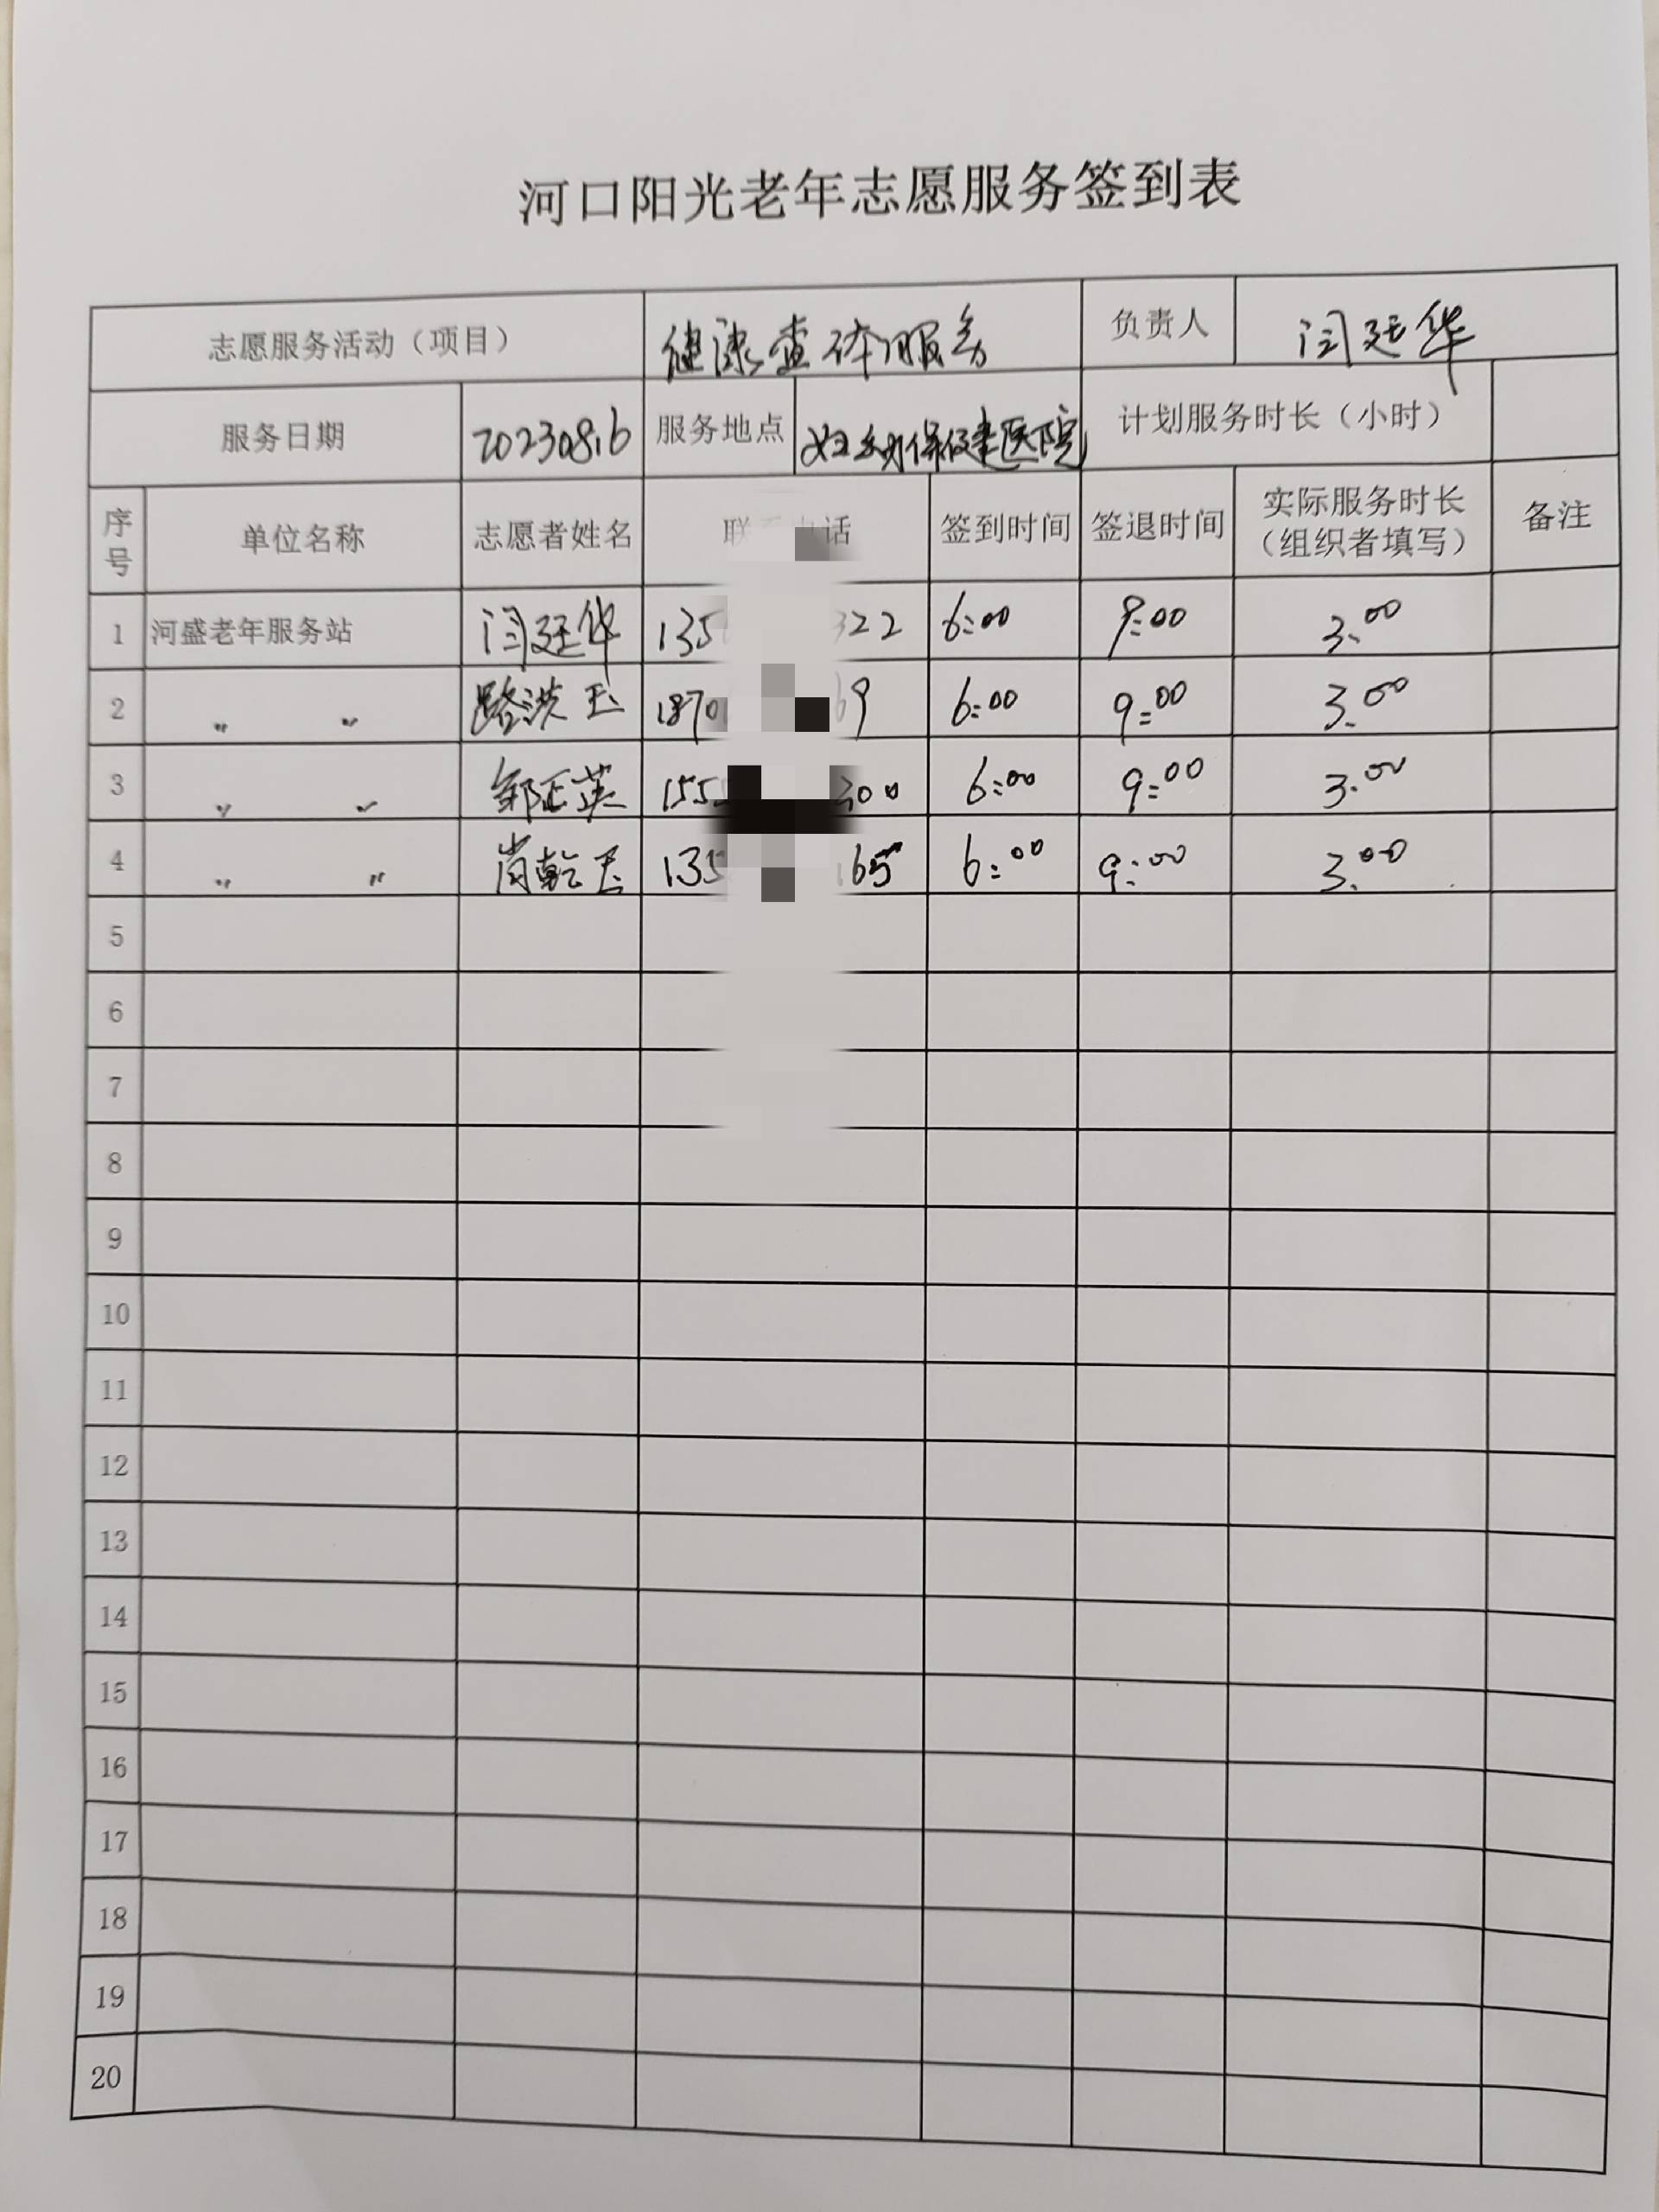 河口阳光老年志愿服务签到表
志愿服务活动（项目） 健康查体服务 负责人 闫廷华
服务日期 2023.08.6 服务地点 妇幼保健医院 计划服务时长（小时）
序号 单位名称 志愿者姓名 联 话 签到时间 签退时间 实际服务时长（组织者填写） 备注
1 河盛老年服务站 闫廷华 135 322 6:00 9:00 3.00
2 〃 〃 路洪玉 1870 69 6:00 9:00 3.00
3 〃 〃 正英 155 300 6:00 9:00 3.00
4 〃 〃 尚乾玉 135 165 6:00 9:00 3.00
5
6
7
8
9
10
11
12
13
14
15
16
17
18
19
20